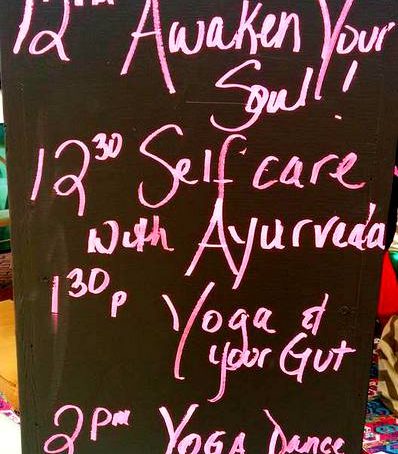 12pm Awaken Your
Soul!
12 30 Self care
with Ayurveda
1 30 p Yoga &
your Gut
2 pm YOGA Dance